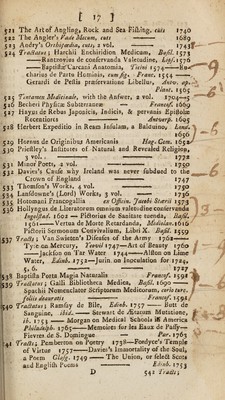 [ 17 ]
521 The Art of Angling, Rock and Sea Fishing, cuts 1740
522 The Angler's Vade Mecum, cuts 1689
523 Andry's Orthopædia, cuts, 2 vol. 1743
524 Tractatus; Harchii Enchiridion Medicum, Basil. 1573
—Rantzovius de conservanda Valetudine, Lips. 1576
—Baptistæ Carcani Anatomia, Ticini 1574
charius de Partu Hominis, cum fig. Franc. 1554
Gerardi de Pestis præservatione Libellus,
Plant. 1565
525 Tentamen Medicinale, with the Answer, 2 vol. 1704
526 Becheri Physicæ Subterraneæ Francof. 1669
527 Hayus de Rebus Japonicis, Indicis, & pervanis Epistolæ
Recentiores Antverp. 1605
528 Herbert Expeditio In Ream Insulam, a Balduino, Lond.
1656
529 Hornus de Originibus Americanis Hag. Com. 1652
530 Priestley's Institutes of Natural and Revealed Religion,
3 vol. 1772
531 Minor Poets, 4 vol. 1750
532 Davies's Cause why Ireland was never subdued to the
Crown of England 1747
533 Thomson's Works, 4 vol. 1750
534 Lansdowne's (Lord) Works, 3 vol. 1736
535 Hotomanni Francogallia ex Officin. Jacobi Stærii 1573
536 Hollyngus de Liberorum omnium valetudine conservanda
Ingolstad. 1602 — Fidorius de Sanitate tuenda, Basil.
1561—Virtus de Morte Retardanda, Mediolan. 1616
Pictorii Sermonum Convivalium, Libri X. Basil. 1559
537 Tracts; Van Swieten's Diseases of the Army 1762 —
Tyle on Mercury, 1747—Art of Beauty 1760
—Jackson on Tar Water 1744—Alston on Lime
Water, Edinb. 1752—Jurin on Inoculation for 1724,
5, 6. 1727
538 Baptista Porta Magia Naturalis Francof. 1591
539 Tractatus; Galli Bibliotheca Medica, Basil. 1590 —
Spachii Nomenclator Scriptorum Medicorum,
foliis decuratis Francof. 1591
540 Tractatus; Ramsay de Bile, Edinb. 1757 — Butt de
Sanguine, ibid. — Stewart de Ætatum Mutatione,
ib. 1753 — Morgan on Medical Schools in America
Philadelph. 1765—Memoires sur les Eaux de Passy—
Fievres de S. Domingue Par. 1763
541 Tracts; Pemberton on Poetry 1738—Fordyce's Temple
of Virtue 1757—Davies's Immortality of the Soul,
a Poem Glasg. 1749 — The Union, or select Scots
and English Poems Edinb. 1753
D
541 Tracts;